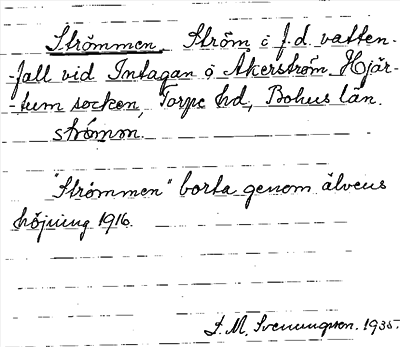 Strömmen Ström i f.d. vatten-
-fall vid Intagan o Åkerström Hjär-
-tum socken, Torpe hd, Bohus län.
strömm.
"Strömmen" borta genom älvens
höjning 1916.
S. M. Svenungson. 1935.